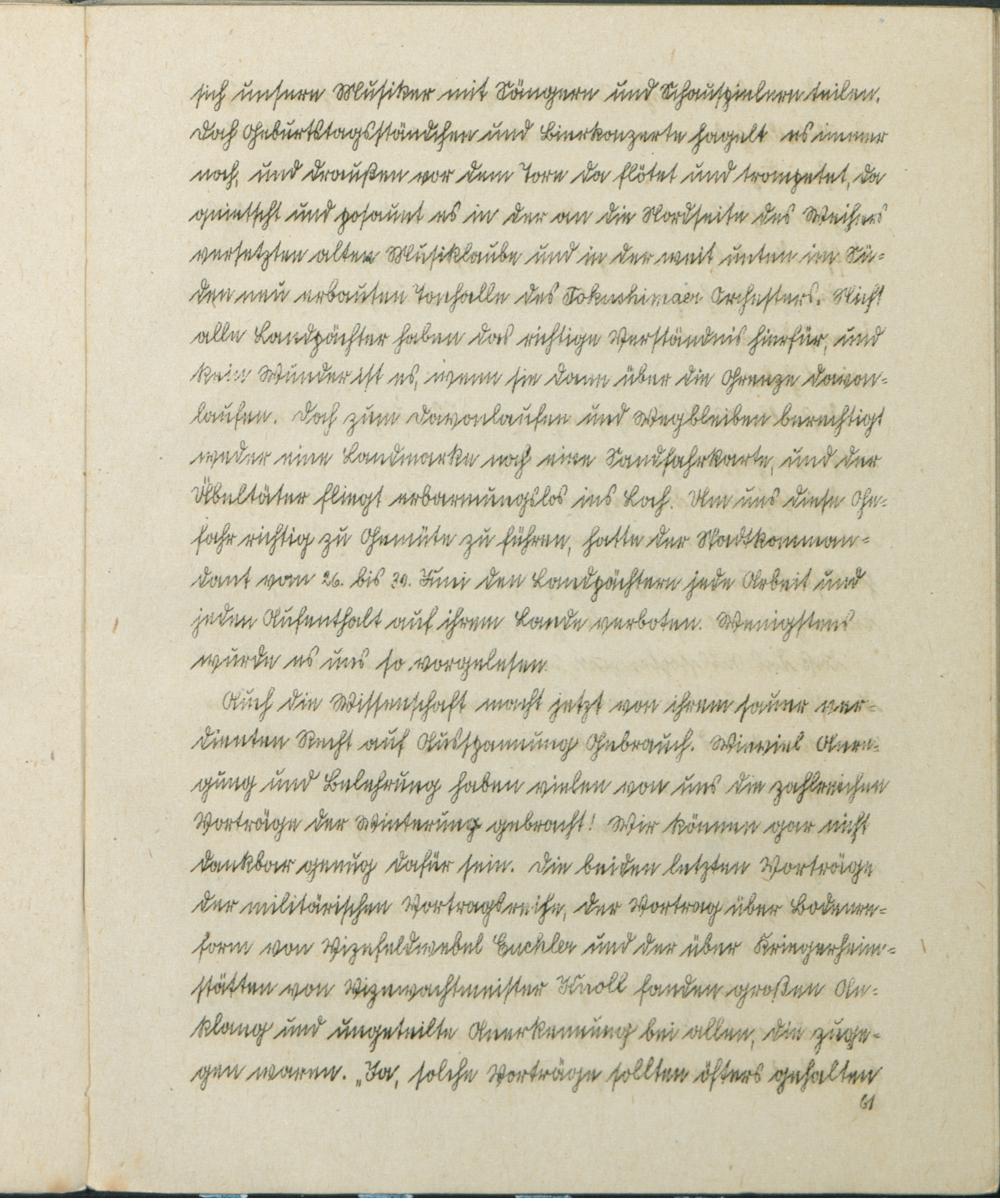 sich unsere Musiker mit Sängern und Schauspielern teilen.
Doch Geburtstagsständchen und Bierkonzerte hagelt es immer
noch, und draußen vor dem Tore da flötet und trompetet, da
quietscht und posaunt es in der an die Nordseite des Weihers
versetzten alten Musiklaube und in der weit unten im Sü-
den neu erbauten Tonhalle des Tokushimaer Orchesters. Nicht
alle Landpächter haben das richtige Verständnis hierfür, und
kein Wunder ist es, wenn sie dann über die Grenze davon-
laufen. Doch zum Davonlaufen und Wegbleiben berechtigt
weder eine Landmarke noch eine Bandfahrkarte, und der
Übeltäter fliegt erbarmungslos ins Loch. Um uns diese Ge-
fahr richtig zu Gemüte zu führen, hatte der Stadtkomman-
dant vom 26. bis 30. Juni den Landpächtern jede Arbeit und
jeden Aufenthalt auf ihrem Lande verboten. Wenigstens
wurde es uns so vorgelesen.
Auch die Wissenschaft macht jetzt von ihrem sauer ver-
dienten Recht auf Ausspannung Gebrauch. Wieviel Anre-
gung und Belehrung haben vielen von uns die zahlreichen
Vorträge der Winterung gebracht! Wir können gar nicht
dankbar genug dafür sein. Die beiden letzten Vorträge
der militärischen Vortragsreihe, der Vortrag über Bodenre-
form von Vizefeldwebel Buckler und der über Kriegerheim-
stätten von Vizewachtmeister Knoll fanden großen An-
klang und ungeteilte Anerkennung bei allen, die zuge-
gen waren. „Ja, solche Vorträge sollten öfters gehalten
61